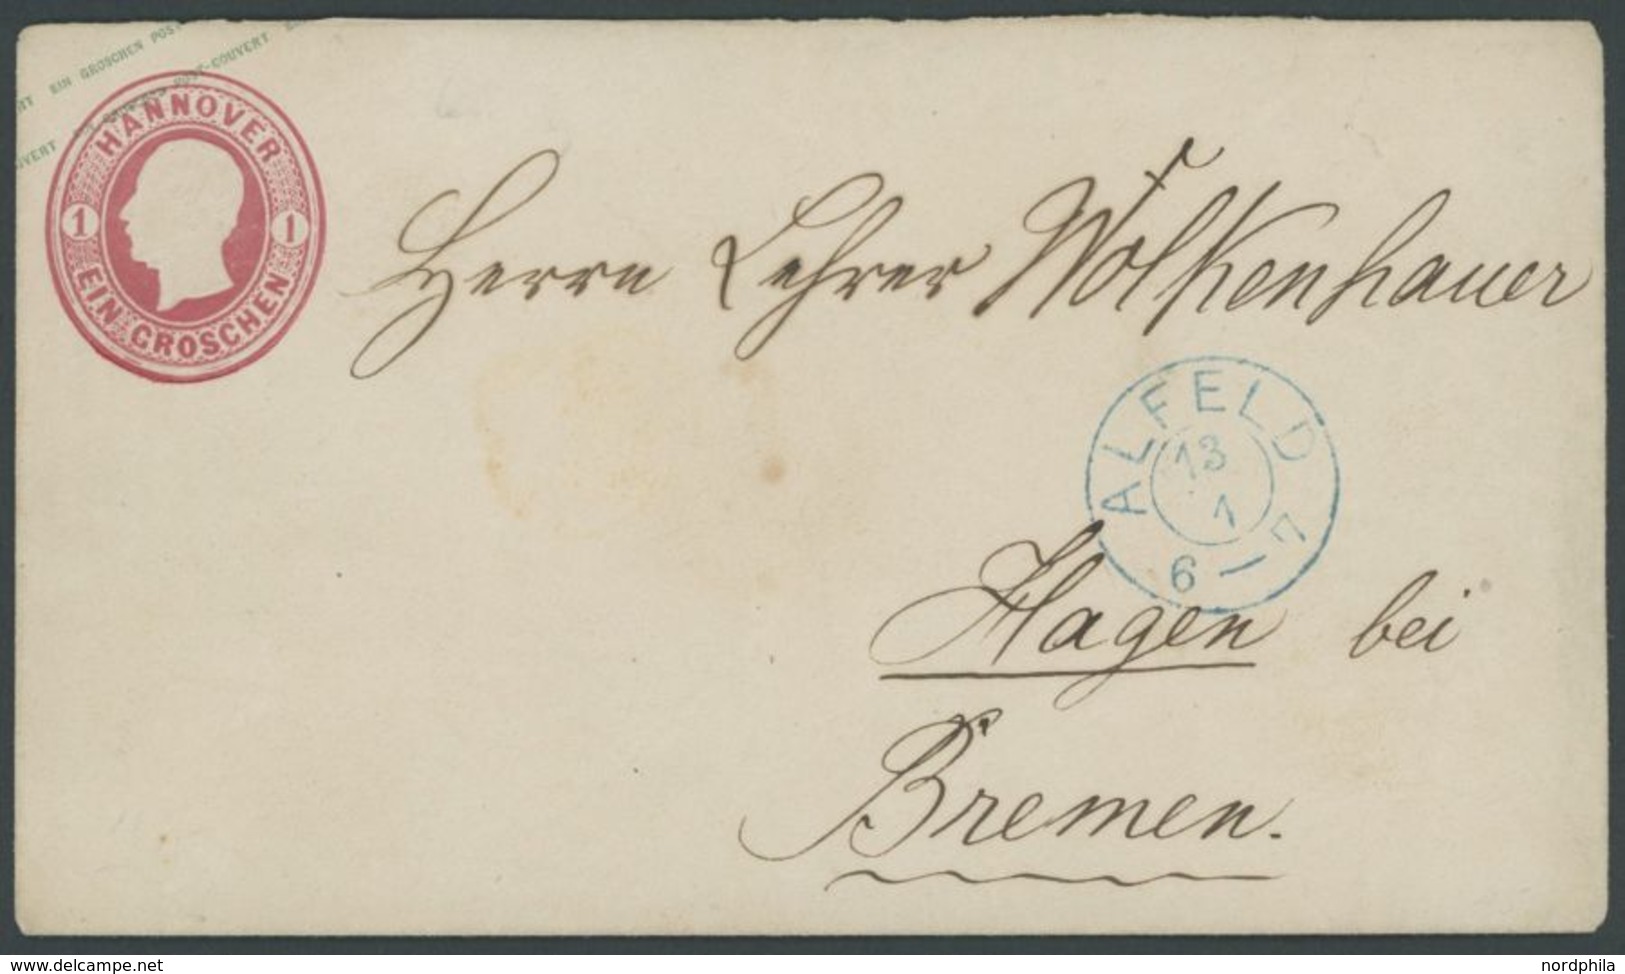 EIN GROSCHEN POST
POST-COUVERT
HANNOVER
1 1
EIN GROSCHEN
Herrn Lehrer Wolkenhauer
ALFELD
13
1
6—7
Hagen bei
Bremen.
www.delcampe.net
nordphila